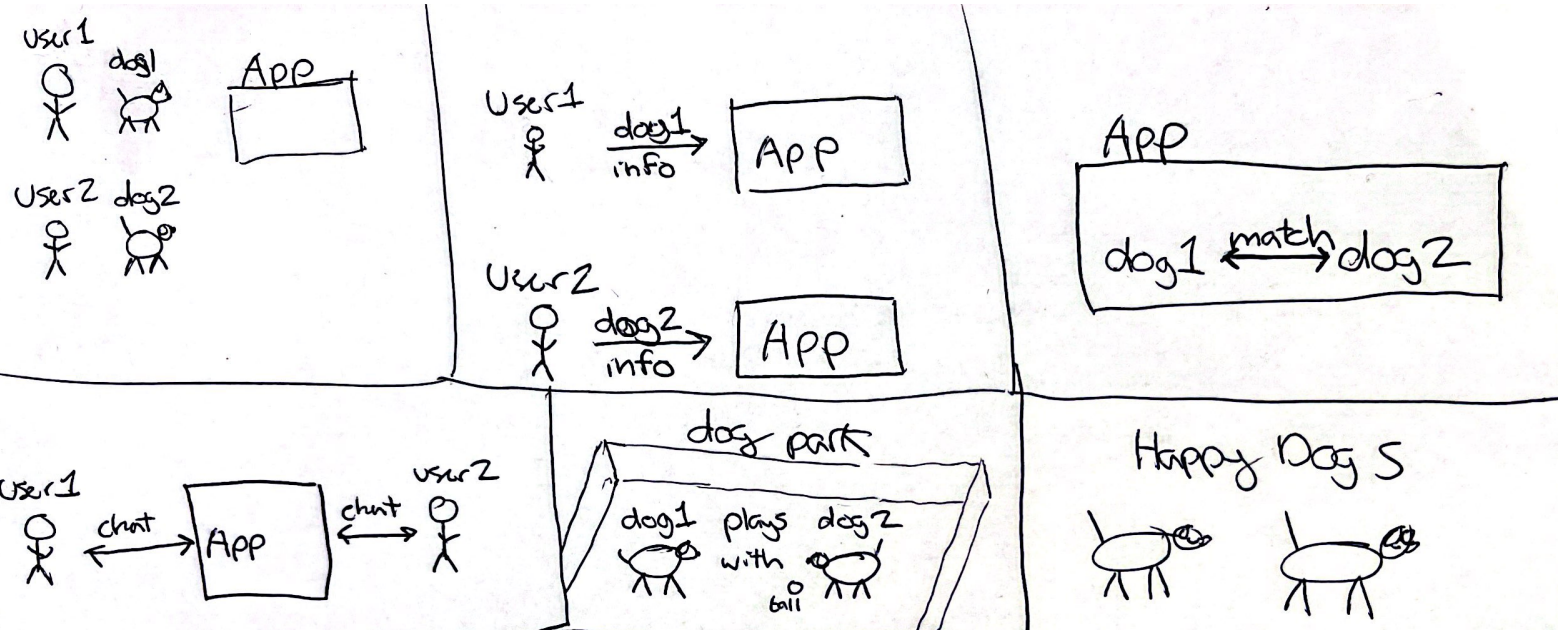 User1
dog1
App
User2 dog2
User1
dog1
info
App
User2
dog2
info
App
App
dog1 match dog2
User1
chat
App
chat
User2
dog park
dog1 plays dog2
with
ball
Happy Dogs